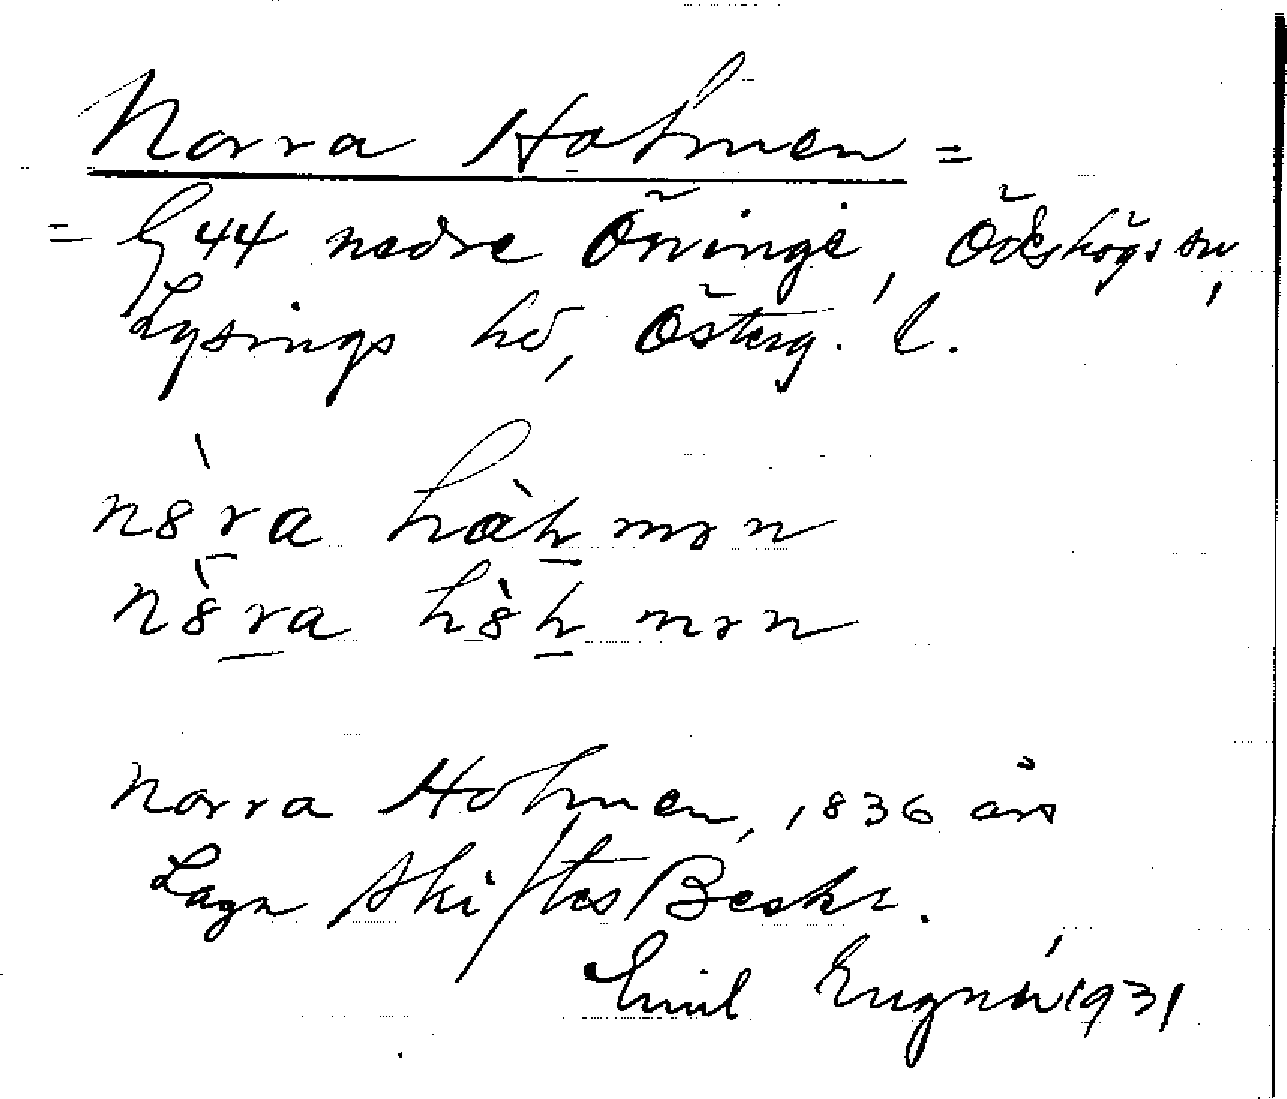 Norra Holmen =
= G 44 nedre Öninge, Ödeshögs sn,
Lysings hd, Österg. l.
nòra
nòra
Norra Holmen, 1836 års
Laga SkiftesBeskr.
Emil 1931